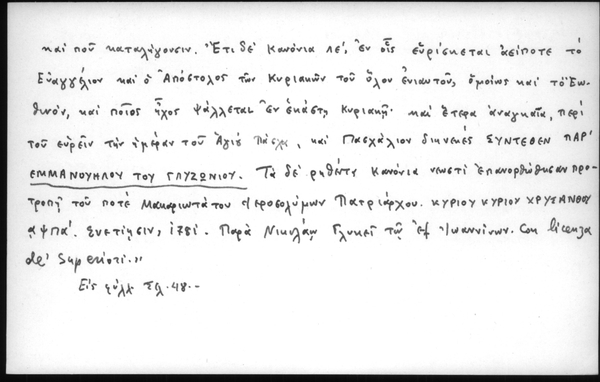 καὶ ποῦ καταλήγουσιν. Ἔτι δὲ Κανόνια λέ, ἐν οἷς εὑρίσκεται ἀείποτε τὸ
Εὐαγγέλιον καὶ ὁ Ἀπόστολος τῶν Κυριακῶν τοῦ ὅλου ἐνιαυτοῦ, ὁμοίως καὶ τὸ Ἑω-
θινόν, καὶ ποῖος ἦχος ψάλλεται ἐν ἑκάστῃ Κυριακῇ· καὶ ἕτερα ἀναγκαῖα, περὶ
τοῦ εὑρεῖν τὴν ἡμέραν τοῦ Ἁγίου Πάσχα, καὶ Πασχάλιον διηνεκές ΣΥΝΤΕΘΕΝ ΠΑΡ'
ΕΜΜΑΝΟΥΗΛΟΥ ΤΟΥ ΓΛΥΖΩΝΙΟΥ. Τὰ δὲ ῥηθέντα Κανόνια νεωστὶ ἐπανορθώθησαν προ-
τροπῇ τοῦ ποτὲ Μακαριωτάτου Ἱεροσολύμων Πατριάρχου. ΚΥΡΙΟΥ ΚΥΡΙΟΥ ΧΡΥΣΑΝΘΟΥ
αψπα΄. Ἐνετίῃσιν, 1781. Παρὰ Νικολάῳ Γλυκεῖ τῷ ἐξ Ἰωαννίνων. Con licenza
de' Superiori.»
Εἰς Σελ. 48.-